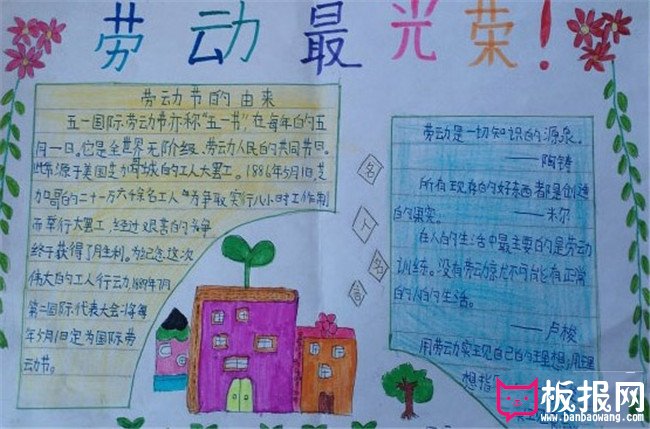 劳动最光荣!
劳动节的由来
五一国际劳动节亦称"五一节",在每年的五
月一日。它是全世界无阶级、劳动人民的共同节日。
此节源于美国芝加哥城的工人大罢工。1886年5月1日,芝
加哥的二十一万六千余名工人为争取实行八小时工作制
而举行大罢工,经过艰苦的
终于获得了胜利。为纪念这次
伟大的工人行动,1889年7月
第二国际代表大会将每
年5月1日定为国际劳
动节。
名
人
名
言
劳动是一切知识的源泉。
——陶铸
所有现存的好东西都是创造
的果实。——米尔
在人的生活中最主要的是劳动
训练。没有劳动就不可能有正常
的人的生活。
——卢梭
用劳动实现自己的理想,用理
想指
板报网
www.banbaowang.com